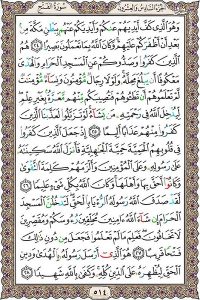 الجزء السادس والعشرون سورة الفتح
وَهُوَ ٱلَّذِي كَفَّ أَيْدِيَهُمْ عَنكُمْ وَأَيْدِيَكُمْ عَنْهُم بِبَطْنِ مَكَّةَ مِنۢ
بَعْدِ أَنْ أَظْفَرَكُمْ عَلَيْهِمْ ۚ وَكَانَ ٱللَّهُ بِمَا تَعْمَلُونَ بَصِيرًا ٢٤ هُمُ
ٱلَّذِينَ كَفَرُوا۟ وَصَدُّوكُمْ عَنِ ٱلْمَسْجِدِ ٱلْحَرَامِ وَٱلْهَدْيَ
مَعْكُوفًا أَن يَبْلُغَ مَحِلَّهُۥ ۚ وَلَوْلَا رِجَالٌ مُّؤْمِنُونَ وَنِسَآءٌ مُّؤْمِنَٰتٌ
لَّمْ تَعْلَمُوهُمْ أَن تَطَـُٔوهُمْ فَتُصِيبَكُم مِّنْهُم مَّعَرَّةٌۢ بِغَيْرِ عِلْمٍ ۖ
لِّيُدْخِلَ ٱللَّهُ فِي رَحْمَتِهِۦ مَن يَشَآءُ ۚ لَوْ تَزَيَّلُوا۟ لَعَذَّبْنَا ٱلَّذِينَ
كَفَرُوا۟ مِنْهُمْ عَذَابًا أَلِيمًا ٢٥ إِذْ جَعَلَ ٱلَّذِينَ كَفَرُوا۟
فِي قُلُوبِهِمُ ٱلْحَمِيَّةَ حَمِيَّةَ ٱلْجَٰهِلِيَّةِ فَأَنزَلَ ٱللَّهُ سَكِينَتَهُۥ
عَلَىٰ رَسُولِهِۦ وَعَلَى ٱلْمُؤْمِنِينَ وَأَلْزَمَهُمْ كَلِمَةَ ٱلتَّقْوَىٰ
وَكَانُوٓا۟ أَحَقَّ بِهَا وَأَهْلَهَا ۚ وَكَانَ ٱللَّهُ بِكُلِّ شَيْءٍ عَلِيمًا ٢٦
لَّقَدْ صَدَقَ ٱللَّهُ رَسُولَهُ ٱلرُّءْيَا بِٱلْحَقِّ ۖ لَتَدْخُلُنَّ ٱلْمَسْجِدَ
ٱلْحَرَامَ إِن شَآءَ ٱللَّهُ ءَامِنِينَ مُحَلِّقِينَ رُءُوسَكُمْ وَمُقَصِّرِينَ
لَا تَخَافُونَ ۖ فَعَلِمَ مَا لَمْ تَعْلَمُوا۟ فَجَعَلَ مِن دُونِ ذَٰلِكَ
فَتْحًا قَرِيبًا ٢٧ هُوَ ٱلَّذِيٓ أَرْسَلَ رَسُولَهُۥ بِٱلْهُدَىٰ وَدِينِ
ٱلْحَقِّ لِيُظْهِرَهُۥ عَلَى ٱلدِّينِ كُلِّهِۦ ۚ وَكَفَىٰ بِٱللَّهِ شَهِيدًا ٢٨
٥١٤